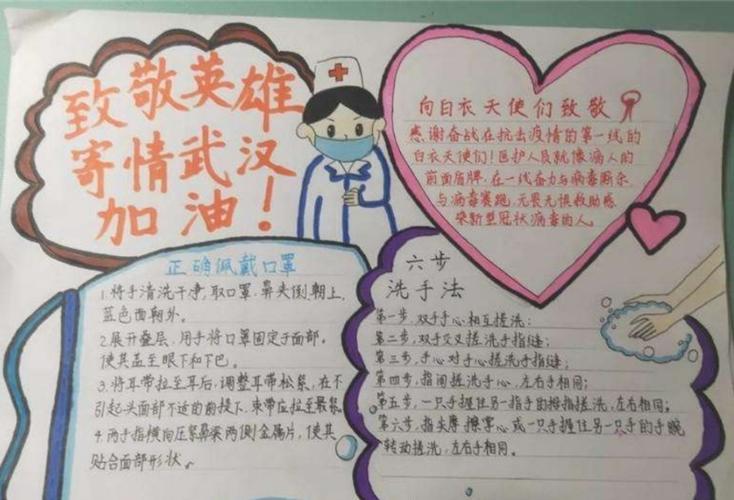 致敬英雄
寄情武汉
加油！
向白衣天使们致敬
感谢奋战在抗击疫情的第一线的
白衣天使们！医护人员就像病人的
前面盾牌，在一线奋力与病毒厮杀，
与病毒赛跑，无畏无惧救助感
染新型冠状病毒的人。
正确佩戴口罩
1.将手清洗干净，取口罩，鼻夹侧朝上，
蓝色面朝外。
2.展开叠层，用手将口罩固定于面部。
使其盖至眼下和下巴。
3.将耳带拉至耳后，调整耳带松紧，在不
引起头面部不适的前提下，束带应拉至最紧
4.两手指横向压紧鼻梁两侧金属片，使其
贴合面部形状。
六步
洗手法
第一步，双手手心相互搓洗；
第二步，双手交叉搓洗手指缝；
第三步，手心对手心搓洗手指缝；
第四步，指间搓洗手心，左右手相同；
第五步，一只手握住另一指手的拇指搓洗，左右同。
第六步，指尖摩擦掌心或一只手握住另一只手的手腕
转动搓洗，左右手相同。